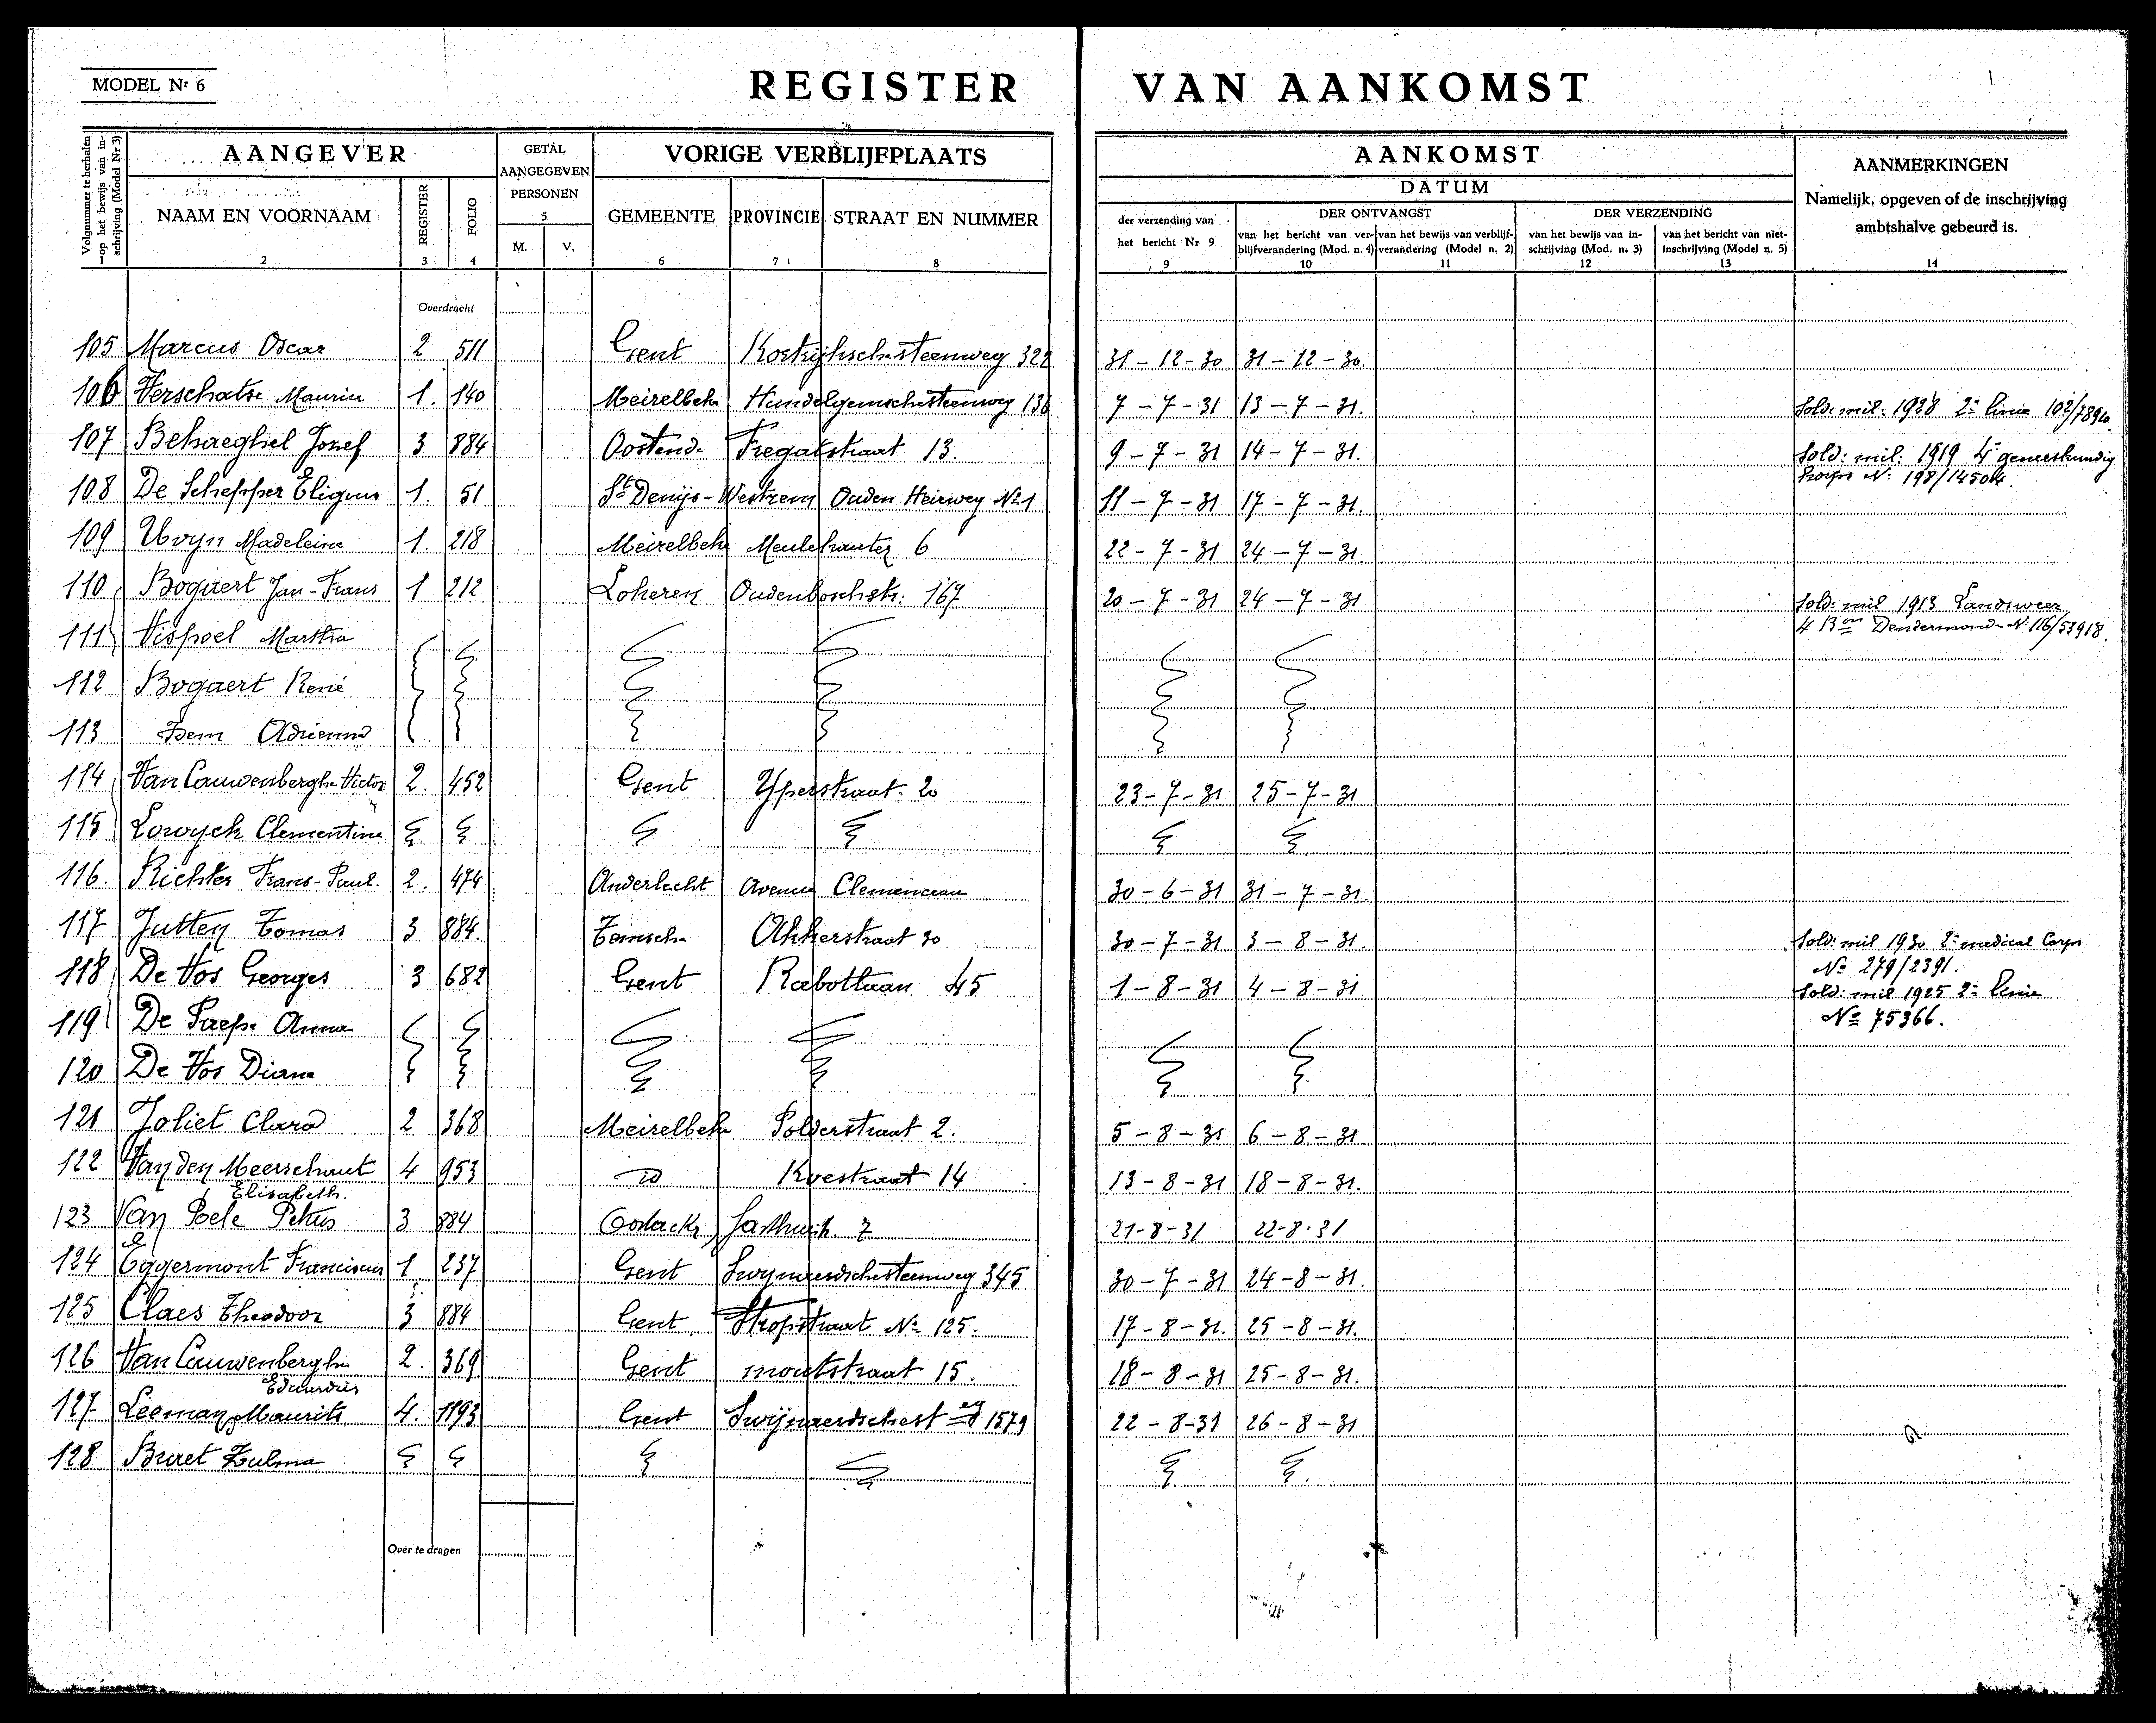 MODEL Nr 6
REGISTER VAN AANKOMST
Volgnummer te herhalen op het bewijs van inschrijving (Model Nr 3)
AANGEVER
GETAL AANGEGEVEN PERSONEN
VORIGE VERBLIJFPLAATS
AANKOMST
DATUM
AANMERKINGEN
Namelijk, opgeven of de inschrijving ambtshalve gebeurd is.
NAAM EN VOORNAAM REGISTER FOLIO M. V. GEMEENTE PROVINCIE STRAAT EN NUMMER
der verzending van het bericht Nr 9
DER ONTVANGST
van het bericht van verblijfverandering (Mod. n. 4) van het bewijs van verblijfverandering (Model n. 2)
DER VERZENDING
van het bewijs van inschrijving (Mod. n. 3) van het bericht van niet-inschrijving (Model n. 5)
1 2 3 4 5 6 7 8 9 10 11 12 13 14
Overdracht
105 Marcus Oscar 2 511 Gent Kortrijkschesteenweg 322 31-12-30 31-12-30
106 Verschatse Maurice 1. 140 Meirelbeke Hundelgemschesteenweg 136 7-7-31 13-7-31. Sold: mil: 1928 2e linie 102/78940
107 Behaeghel Jozef 3 884 Oostende Fregatstraat 13. 9-7-31 14-7-31. Sold: mil: 1919 4e geneeskundig
Korps No: 198/14504.
108 De Schepper Eligius 1. 51 St Denijs-Westrem Ouden Heirweg No 1 11-7-31 17-7-31.
109 Uvyn Madeleine 1. 218 Meirelbeke Meulekouter 6 22-7-31 24-7-31.
110 Bogaert Jan-Frans 1 212 Lokeren Oudenboschstr: 167 20-7-31 24-7-31 Sold: mil 1913 Landsweer
111 Vispoel Martha 4 Bon Dendermonde No 116/53918.
112 Bogaert René
113 Idem Adrienna
114 Van Cauwenberghe Victor 2. 452 Gent Yperstraat. 20 23-7-31 25-7-31
115 Lowyck Clementine
116. Richter Frans-Paul. 2. 474 Anderlecht Avenue Clemenceau 30-6-31 31-7-31.
117 Jutten Tomas 3 884. Temsche Akkerstraat 30. 30-7-31 3-8-31. Sold: mil 1930 2e medical Corps
No 279/2391.
118 De Vos Georges 3 682 Gent Rabotlaan 45 1-8-31 4-8-31. Sold: mil 1925 2e linie
No 75366.
119 De Paepe Anna
120 De Vos Diana
121 Joliet Clara 2 368 Meirelbeke Polderstraat 2. 5-8-31 6-8-31
122 Van den Meerschaut 4 953 id Koestraat 14 13-8-31 18-8-31.
Elisabeth.
123 Van Poele Petrus 3 884 7 21-8-31 22-8-31
124 Eggermont Franciscus 1 237 Gent Swynaerdschesteenweg 345 30-7-31 24-8-31.
125 Claes Theodoor 3 884 Gent Stropstraat No 125. 17-8-31. 25-8-31.
126 Van Cauwenberghe 2. 369 Gent moutstraat 15. 18-8-31 25-8-31.
Eduardus
127 Leeman Maurits 4. 1193 Gent Swijnaerdschesteeg 1579 22-8-31 26-8-31
128 Braet Zulma
Over te dragen